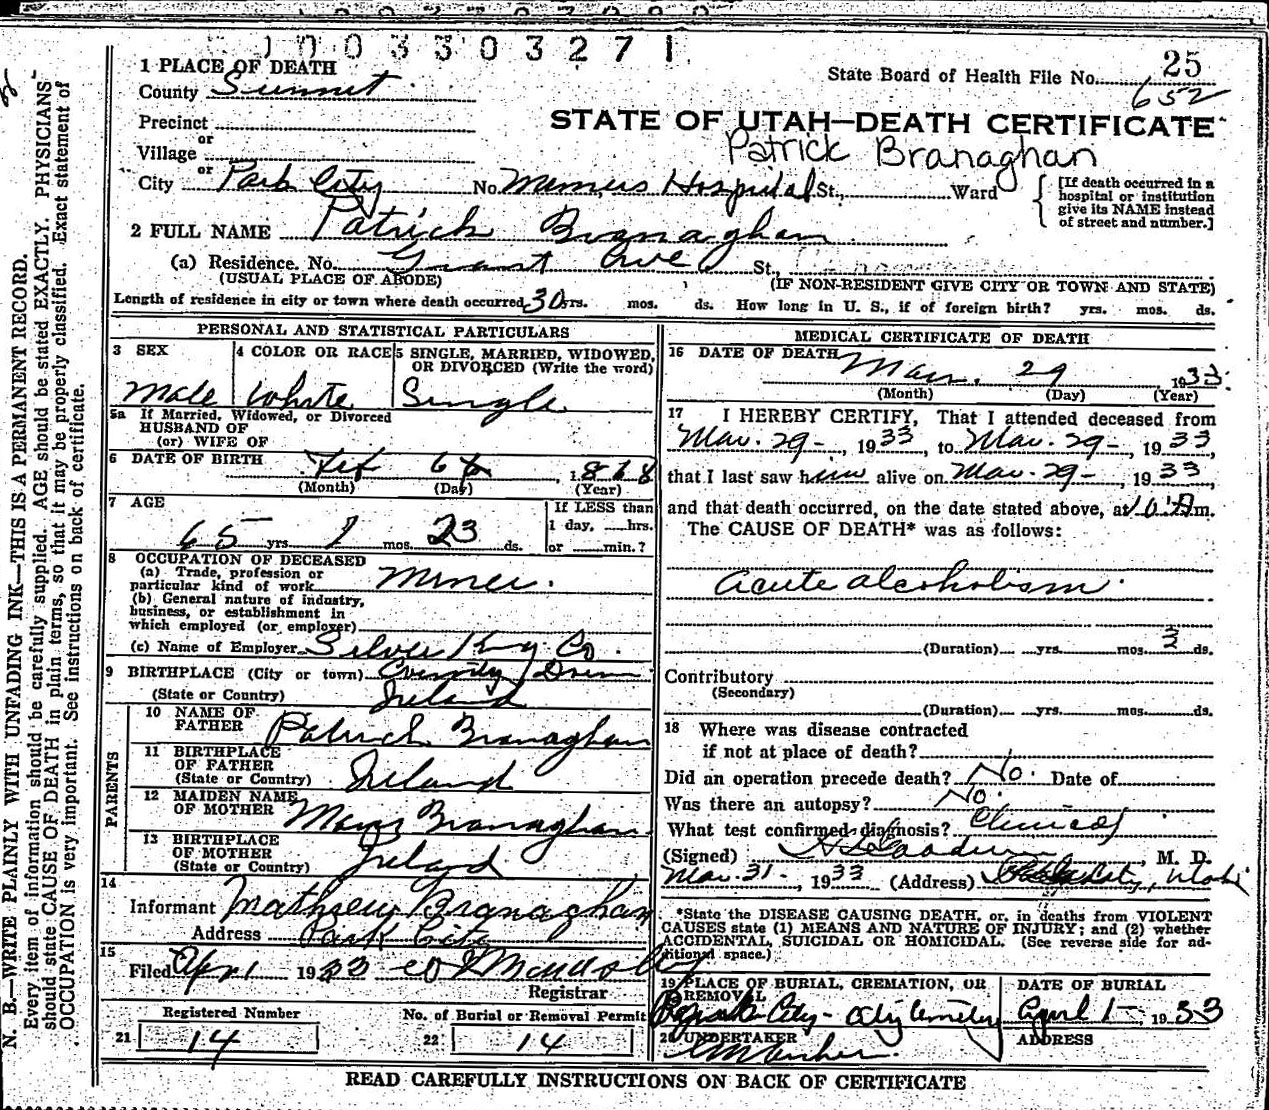 1003303271
1 PLACE OF DEATH
State Board of Health File No. 25
652
County Summit
Precinct
or
Village
STATE OF UTAH—DEATH CERTIFICATE
Patrick Branaghan
or
City Park City No. Miners Hospital St., Ward
[If death occurred in a hospital or institution give its NAME instead of street and number.]
2 FULL NAME Patrick Branaghan
(a) Residence. No. Grant Ave St.,
(USUAL PLACE OF ABODE) (IF NON-RESIDENT GIVE CITY OR TOWN AND STATE)
Length of residence in city or town where death occurred 30 yrs. mos. ds. How long in U. S., if of foreign birth? yrs. mos. ds.
PERSONAL AND STATISTICAL PARTICULARS
3 SEX 4 COLOR OR RACE 5 SINGLE, MARRIED, WIDOWED, OR DIVORCED (Write the word)
Male White Single
5a If Married, Widowed, or Divorced
HUSBAND OF
(or) WIFE OF
6 DATE OF BIRTH Feb 6 1868
(Month) (Day) (Year)
7 AGE
65 yrs. 1 mos. 23 ds.
If LESS than 1 day, hrs. or min.?
8 OCCUPATION OF DECEASED
(a) Trade, profession or particular kind of work Miner.
(b) General nature of industry, business, or establishment in which employed (or employer)
(c) Name of Employer Silver King Co.
9 BIRTHPLACE (City or town) County
(State or Country) Ireland
PARENTS
10 NAME OF FATHER Patrick Branaghan
11 BIRTHPLACE OF FATHER (State or Country) Ireland
12 MAIDEN NAME OF MOTHER Mary Branaghan
13 BIRTHPLACE OF MOTHER (State or Country) Ireland
14
Informant Mathew Branaghan
Address Park City
15
Filed Apr 1 1933
Registrar
Registered Number No. of Burial or Removal Permit
21 14 22 14
MEDICAL CERTIFICATE OF DEATH
16 DATE OF DEATH Mar. 29 1933
(Month) (Day) (Year)
17 I HEREBY CERTIFY, That I attended deceased from
Mar. 29 - , 1933, to Mar. 29 - , 1933,
that I last saw him alive on Mar. 29 - , 1933,
and that death occurred, on the date stated above, at 10 A m.
The CAUSE OF DEATH* was as follows:
acute alcoholism.
(Duration) yrs. mos. 3 ds.
Contributory
(Secondary)
(Duration) yrs. mos. ds.
18 Where was disease contracted
if not at place of death?
Did an operation precede death? No. Date of
Was there an autopsy? No.
What test confirmed diagnosis? Clinical
(Signed) M. D.
Mar. 31 - , 1933 (Address) Park City, Utah
*State the DISEASE CAUSING DEATH, or, in deaths from VIOLENT
CAUSES state (1) MEANS AND NATURE OF INJURY; and (2) whether
ACCIDENTAL, SUICIDAL OR HOMICIDAL. (See reverse side for ad-
ditional space.)
19 PLACE OF BURIAL, CREMATION, OR REMOVAL DATE OF BURIAL
Park City - City Cemetery April 1 - 1933
20 UNDERTAKER ADDRESS
READ CAREFULLY INSTRUCTIONS ON BACK OF CERTIFICATE
N. B.—WRITE PLAINLY WITH UNFADING INK—THIS IS A PERMANENT RECORD.
Every item of information should be carefully supplied. AGE should be stated EXACTLY. PHYSICIANS
should state CAUSE OF DEATH in plain terms, so that it may be properly classified. Exact statement of
OCCUPATION is very important. See instructions on back of certificate.